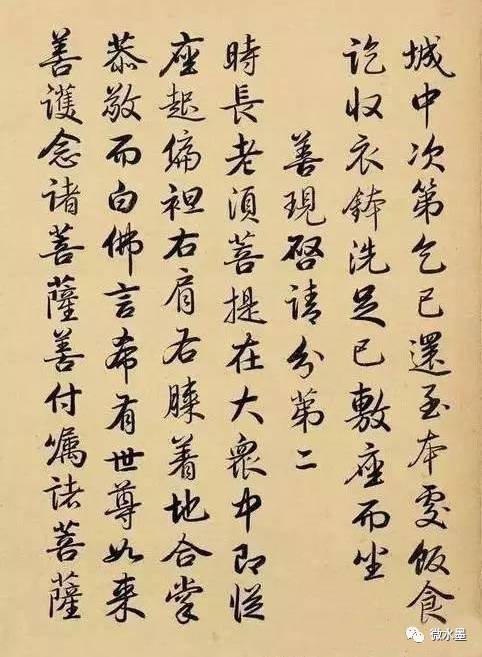 城中次第乞已還至本處飯食
訖收衣鉢洗足已敷座而坐
善現啓請分第二
時長老須菩提在大衆中即從
座起偏袒右肩右膝着地合掌
恭敬而白佛言希有世尊如来
善護念諸菩薩善付囑諸菩薩
微水墨